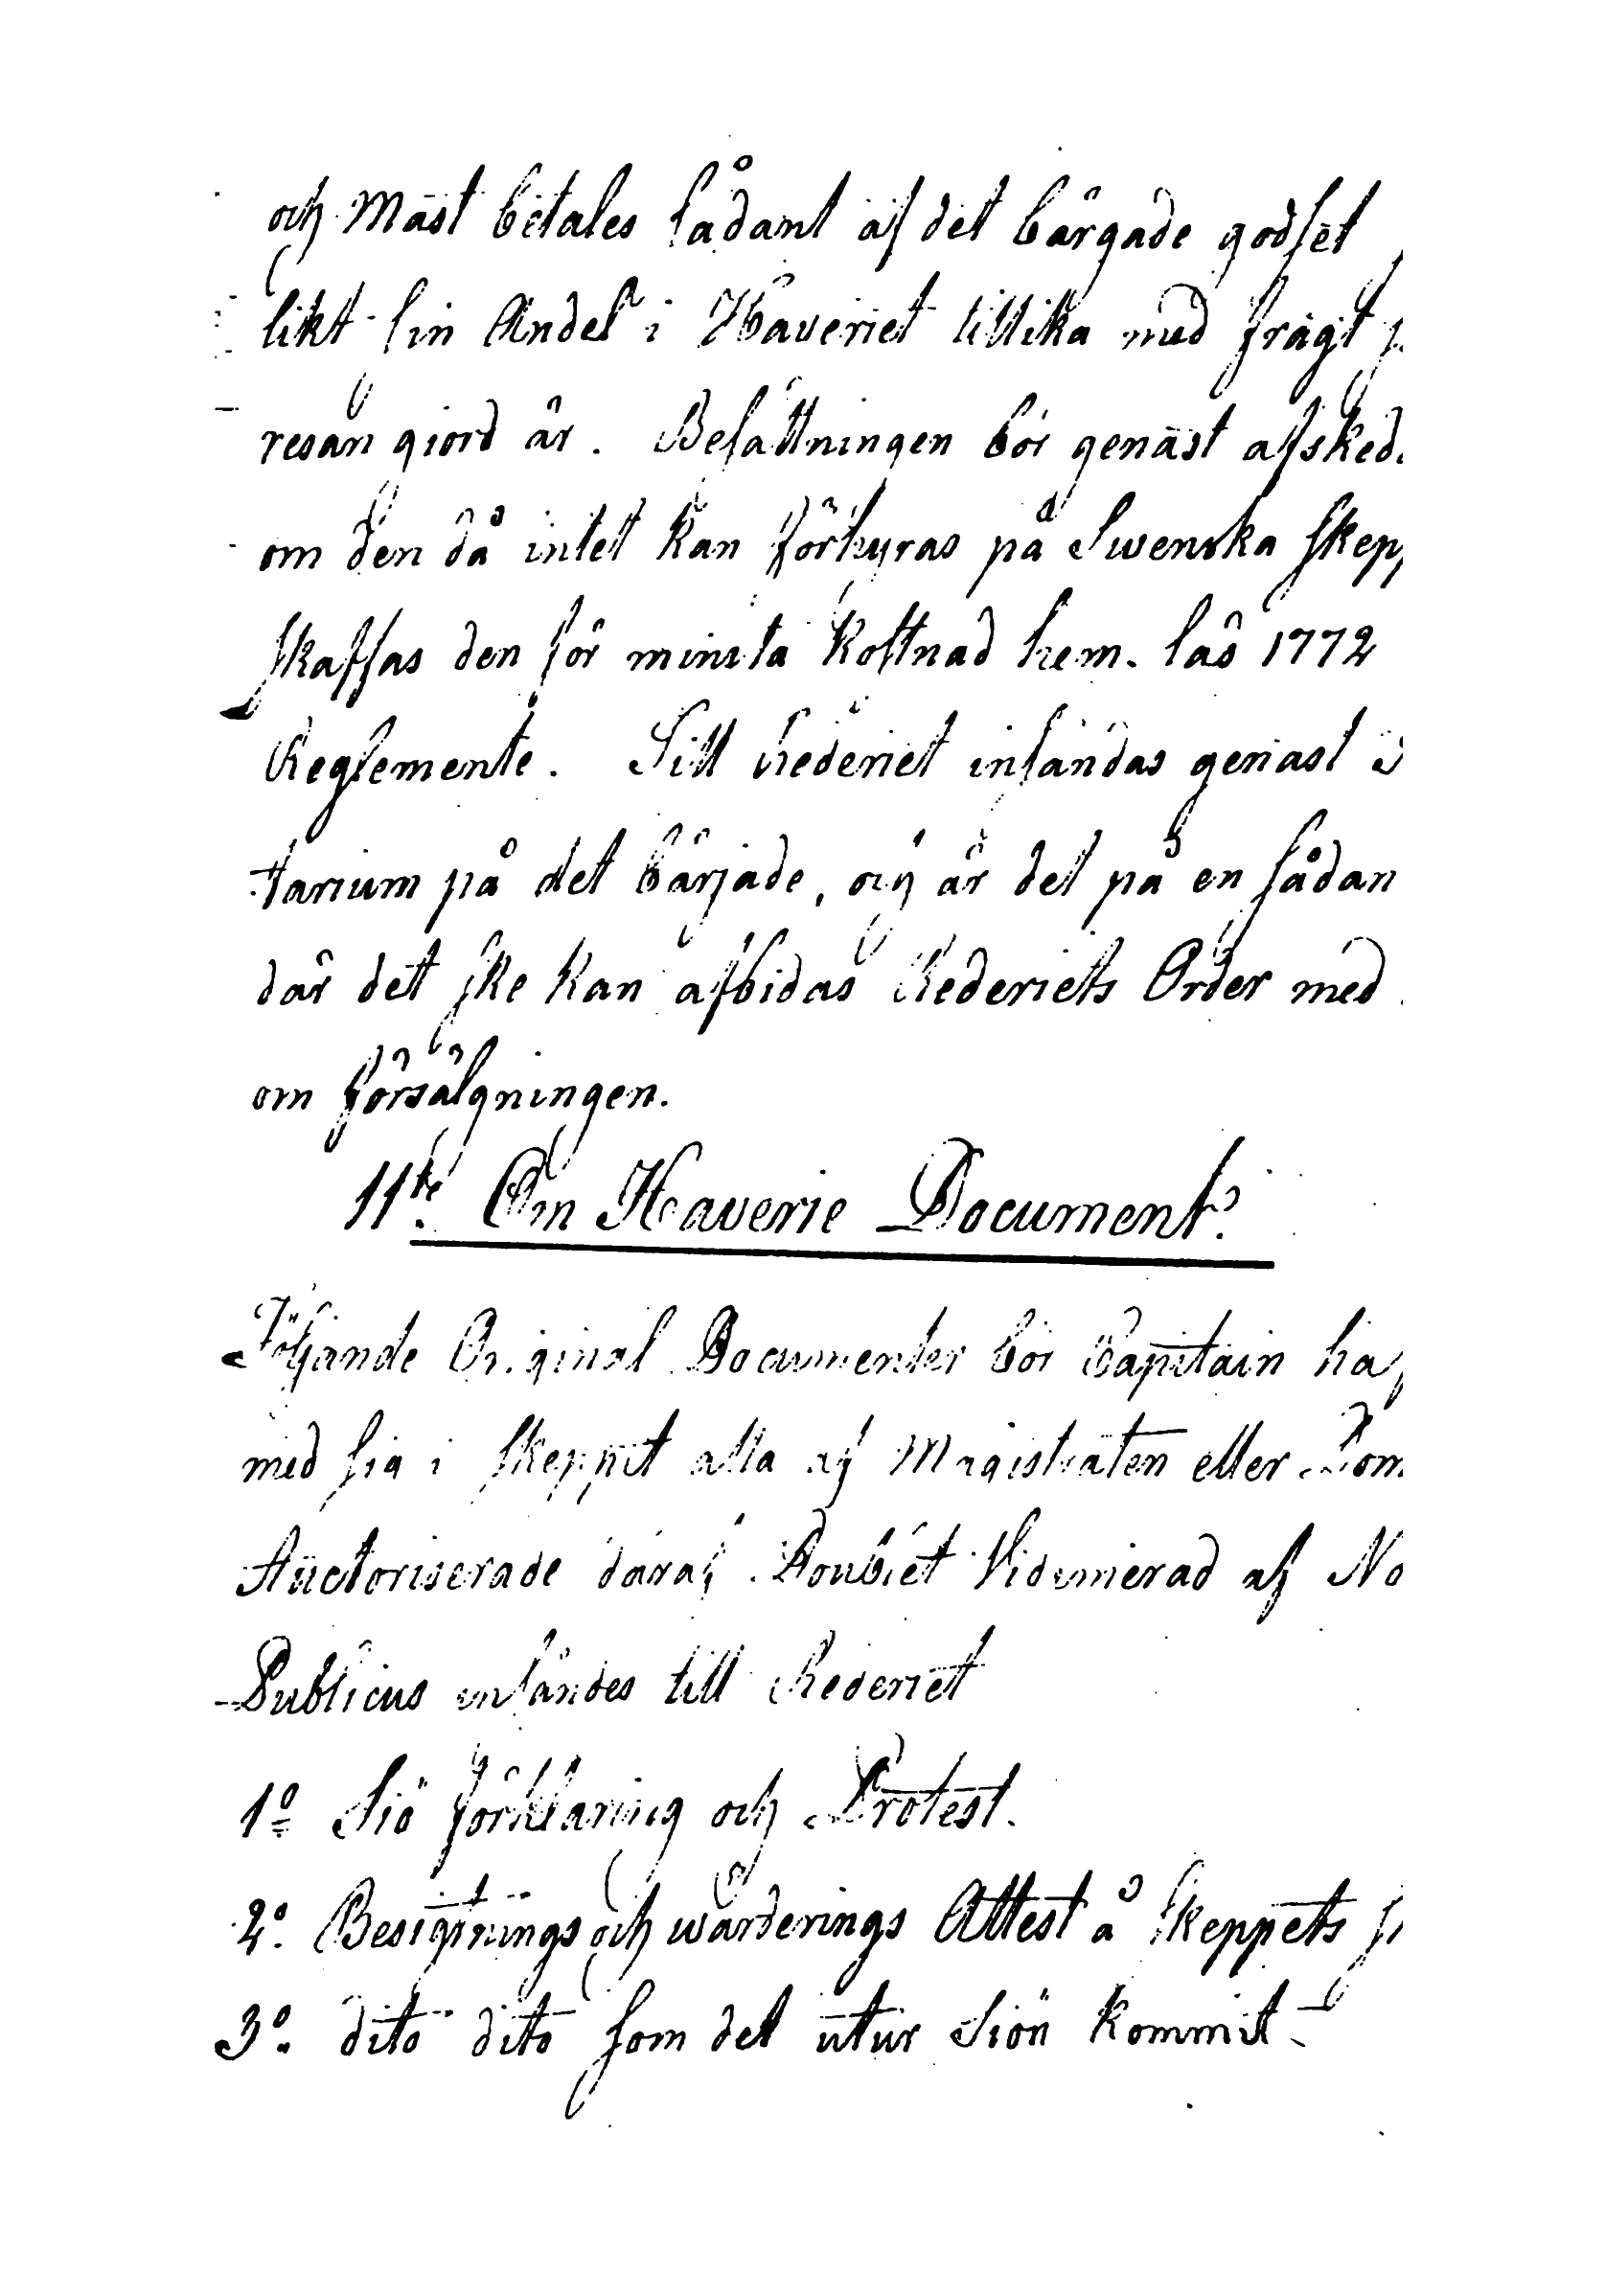 och Mast betales sådant af det bärgade godset
likt sin Andel i Haveriet tillika med fragt
resan giord är. Besättningen bör genast afsked
om den då intet kan förhyras på Swenska skepp
skaffas den för minsta kostnad hem. läs 1772
Reglemente. Till Rederiet insändas genast
tarium på det bärjade, och är det på en sådan
där det ske kan afbidas Rederiets Order med
om försälgningen.
11te Om Haverie Document.
Följande Original Documenter bör Capitain haf
med sig i skeppet alla af Magistraten eller Dom
Auctoriserade däraf Doublet Vidimerad af No
Publicus insändes till Rederiet
1o Siö förklaring och Protest.
2o. Besigtnings och wärderings Attest å skeppets
3o. dito dito som det utur Siön kommit